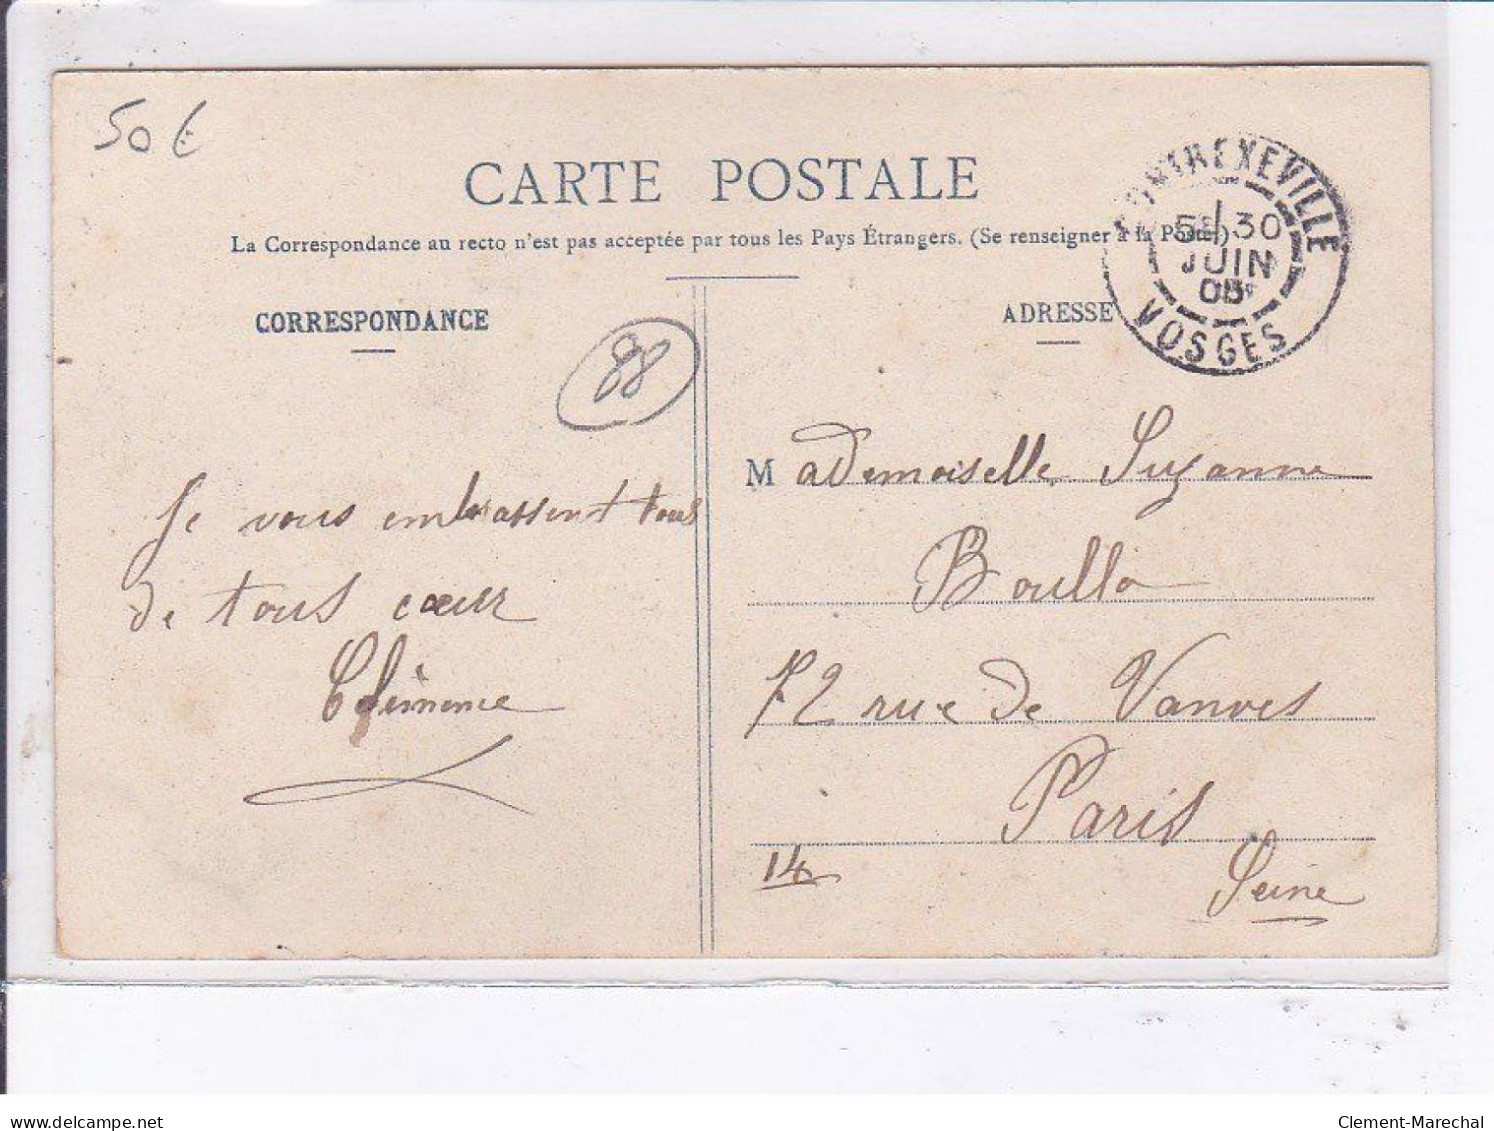 50 €
CARTE POSTALE
La Correspondance au recto n'est pas acceptée par tous les Pays Étrangers. (Se renseigner à la Poste.)
CONTREXEVILLE
5E 30
JUIN
VOSGES
CORRESPONDANCE
88
ADRESSE
Je vous embrassent tous
de tous cœur
Clémence
Mademoiselle Suzanne
Boulla
72 rue de Vanves
Paris
14
Seine
delcampe.net
Clement-Marechal